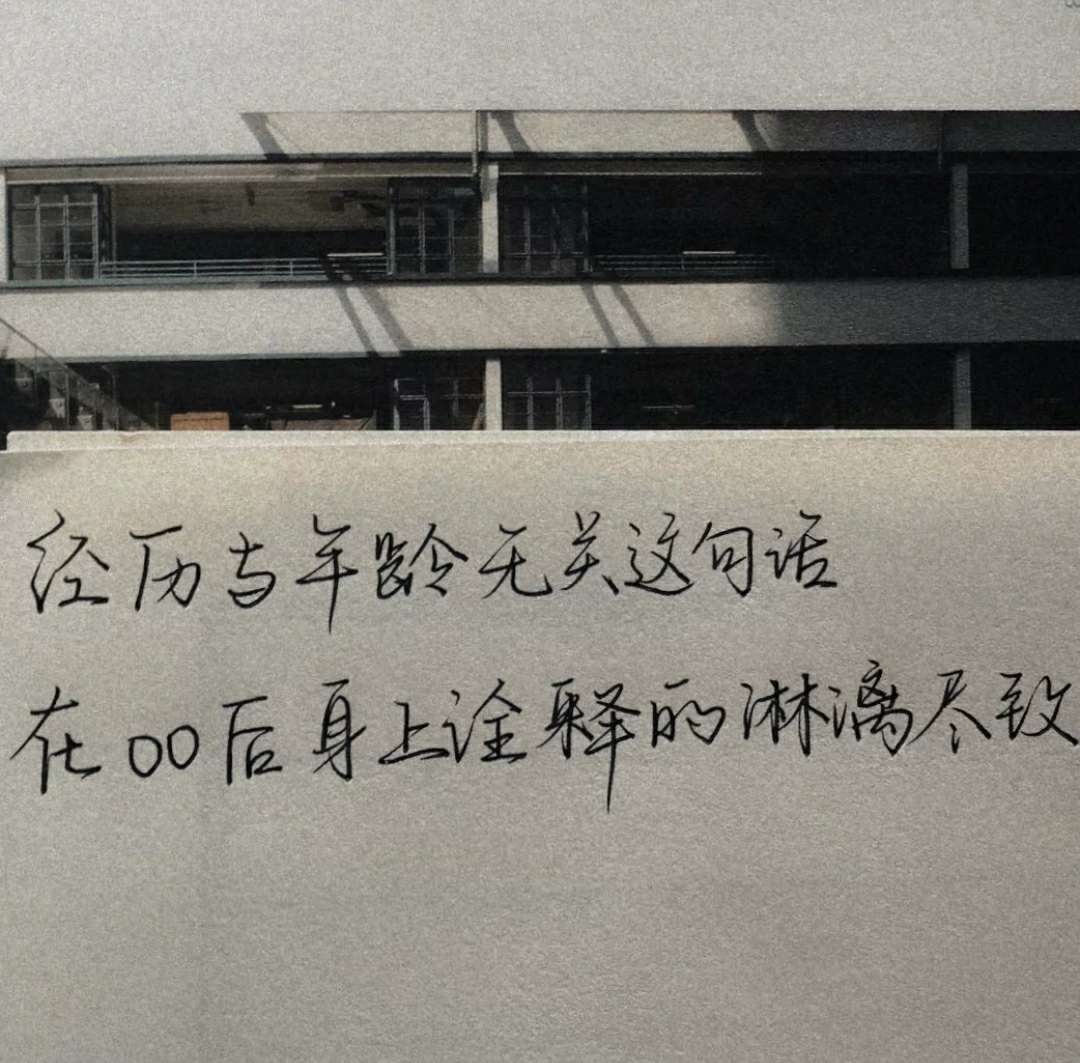 经历与年龄无关这句话
在00后身上诠释的淋漓尽致